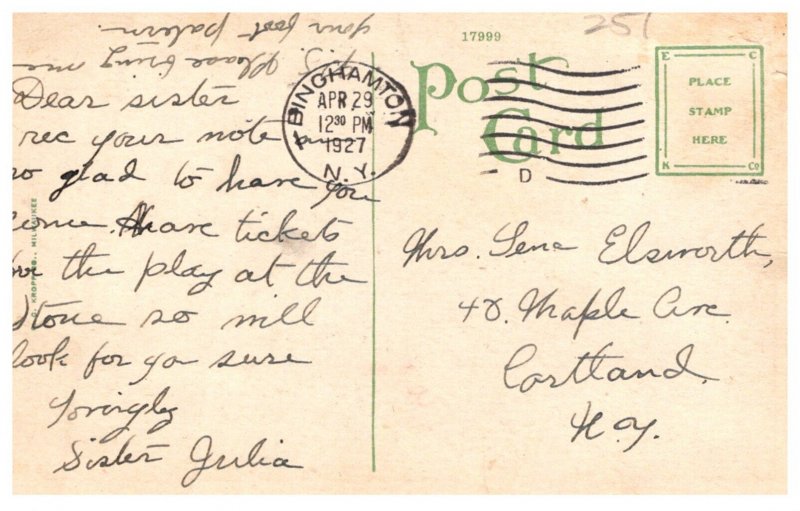 17999
251
Post
Card
E C
PLACE
STAMP
HERE
K Co
BINGHAMTON
APR 29
12 30 PM
1927
N. Y.
D
P.S. Please bring me
your foot pattern.
Dear sister
rec your note am
so glad to have you
come. Have tickets
for the play at the
Stone so will
look for yo sure
Lovingly
Sister Julia
Mrs. Lena Elsworth,
40. Maple Ave.
Cortland.
N.Y.
KROPP CO., MILWAUKEE